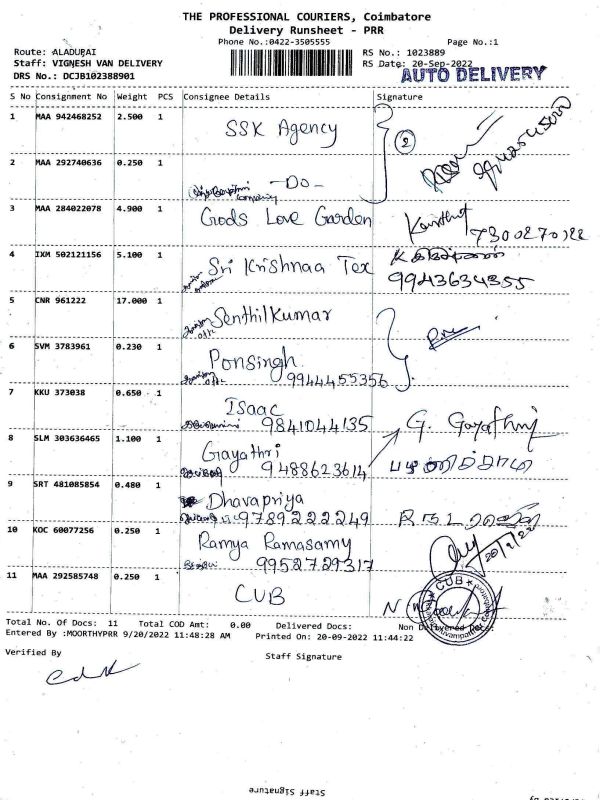 THE PROFESSIONAL COURIERS, Coimbatore
Delivery Runsheet - PRR
Phone No.:0422-3505555 Page No.:1
Route: ALADURAI RS No.: 1023889
Staff: VIGNESH VAN DELIVERY RS Date: 20-Sep-2022
DRS No.: DCJB102388901 AUTO DELIVERY
S No Consignment No Weight PCS Consignee Details Signature
1 MAA 942468252 2.500 1 SSK Agency 2
2 MAA 292740636 0.250 1 -Do-
3 MAA 284022078 4.900 1 Gods Love Garden
4 IXM 502121156 5.100 1 Sri Krishnaa Tex
9943634355
5 CNR 961222 17.000 1 Senthilkumar
6 SVM 3783961 0.230 1 Ponsingh
9944455356
7 KKU 373038 0.650 1 Isaac
9841044135 G. Gayathri
8 SLM 303636465 1.100 1 Gayathri
9488623614
9 SRT 481085854 0.480 1 Dhavapriya
9789222249
10 KOC 60077256 0.250 1 Ramya Ramasamy
9952729317 20/9/22
11 MAA 292585748 0.250 1 CUB
CUB
Total No. Of Docs: 11 Total COD Amt: 0.00 Delivered Docs: Non Delivered Docs:
Entered By :MOORTHYPRR 9/20/2022 11:48:28 AM Printed On: 20-09-2022 11:44:22
Verified By Staff Signature
Staff Signature